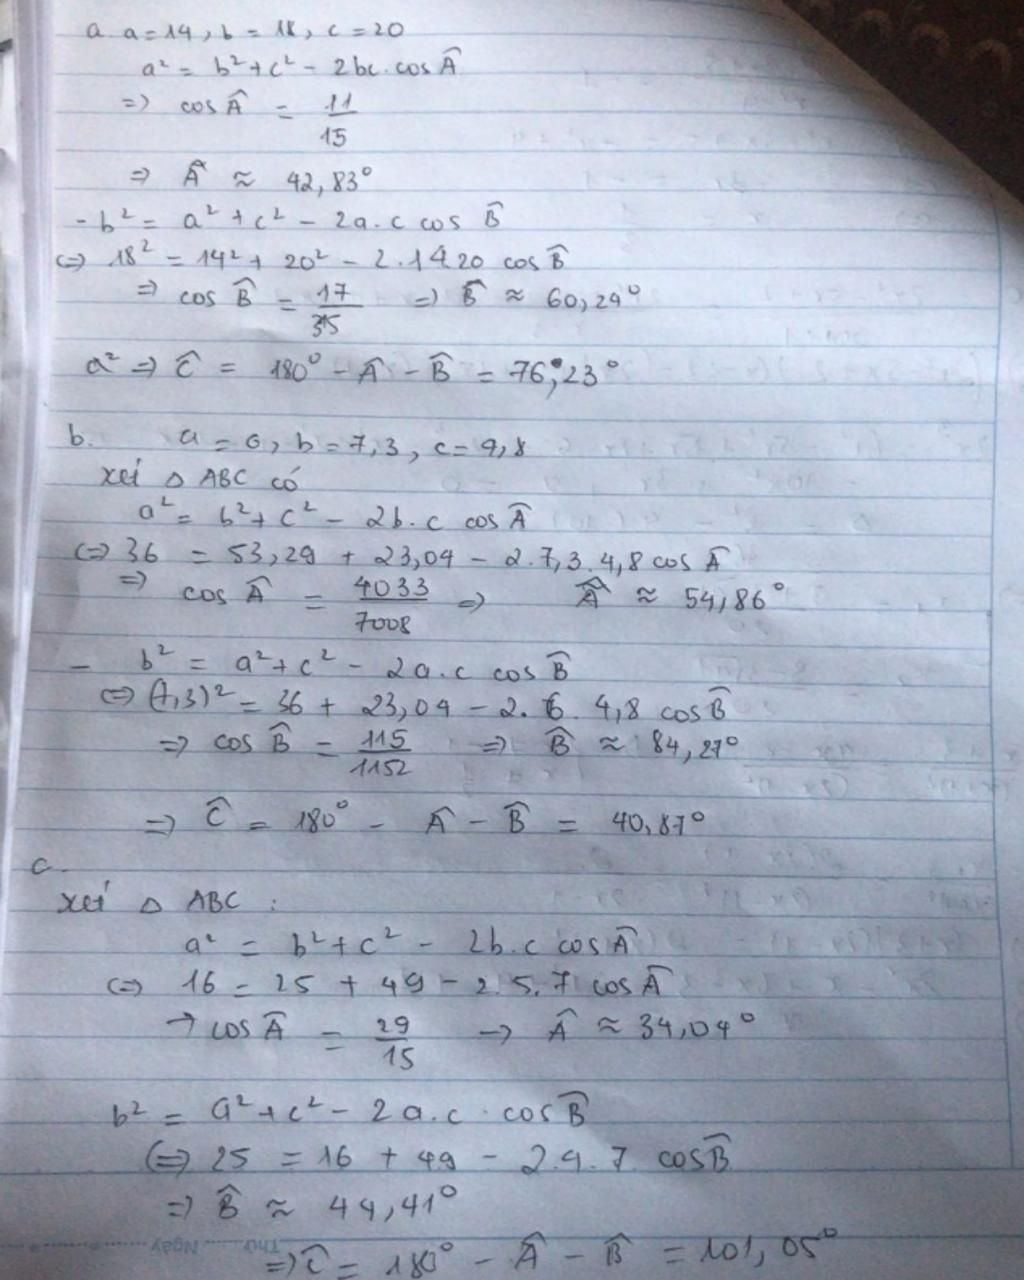 a a=14, b=18, c=20
a² = b²+c² - 2bc.cosÂ
=> cosÂ = 11/15
=> Â ≈ 42,83°
- b² = a²+c² - 2a.c cos B̂
<=> 18² = 14² + 20² - 2.14.20 cos B̂
=> cos B̂ = 17/35 => B̂ ≈ 60,24°
a² => Ĉ = 180° - Â - B̂ = 76,23°
b. a = 6, b = 7,3, c = 4,8
xét △ ABC có
a² = b²+c² - 2b.c cosÂ
<=> 36 = 53,29 + 23,04 - 2.7,3.4,8 cos Â
=> cos Â = 4033/7008 => Â ≈ 54,86°
- b² = a²+c² - 2a.c cos B̂
<=> (7,3)² = 36 + 23,04 - 2.6.4,8 cosB̂
=> cos B̂ = 115/1152 => B̂ ≈ 84,27°
=> Ĉ = 180° - Â - B̂ = 40,87°
c.
xét △ ABC :
a² = b²+c² - 2b.c cosÂ
<=> 16 = 25 + 49 - 2.5.7 cosÂ
→ cosÂ = 29/15 → Â ≈ 34,04°
b² = a²+c² - 2a.c.cosB̂
<=> 25 = 16 + 49 - 2.4.7 cosB̂
=> B̂ ≈ 44,41°
=> Ĉ = 180° - Â - B̂ = 101,05°
Thứ Ngày